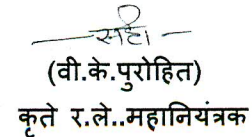 सही
(वी.के.पुरोहित)
कृते र.ले..महानियंत्रक